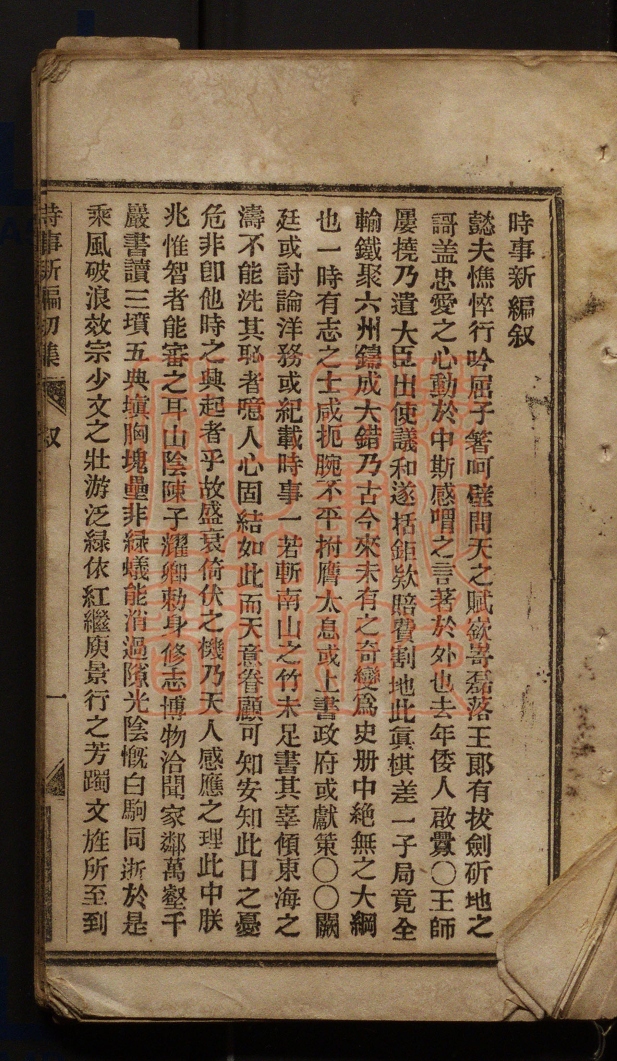 時事新編叙
懿夫憔悴行吟屈子箸呵壁問天之賦嶔崎磊落王郎有拔劍斫地之
謌盖忠愛之心動於中斯感喟之言著於外也去年倭人啟釁〇王師
屢撓乃遣大臣出使議和遂括鉅欵賠費割地此眞棋差一子局竟全
輸鐵聚六州鑄成大錯乃古今來未有之奇變爲史册中絶無之大綱
也一時有志之士咸扼腕不平拊膺太息或上書政府或獻策〇〇闕
廷或討論洋務或紀載時事一若斬南山之竹未足書其辜傾東海之
濤不能洗其恥者噫人心固結如此而天意眷顧可知安知此日之憂
危非卽他時之興起者乎故盛衰倚伏之機乃天人感應之理此中朕
兆惟智者能審之耳山陰陳子耀卿勅身修志博物洽聞家鄰萬壑千
巖書讀三墳五典塡胸塊壘非綠蟻能消過隙光陰慨白駒同逝於是
乘風破浪效宗少文之壯游泛緑依紅繼庾景行之芳躅文旌所至到
時事新編初集 叙 一